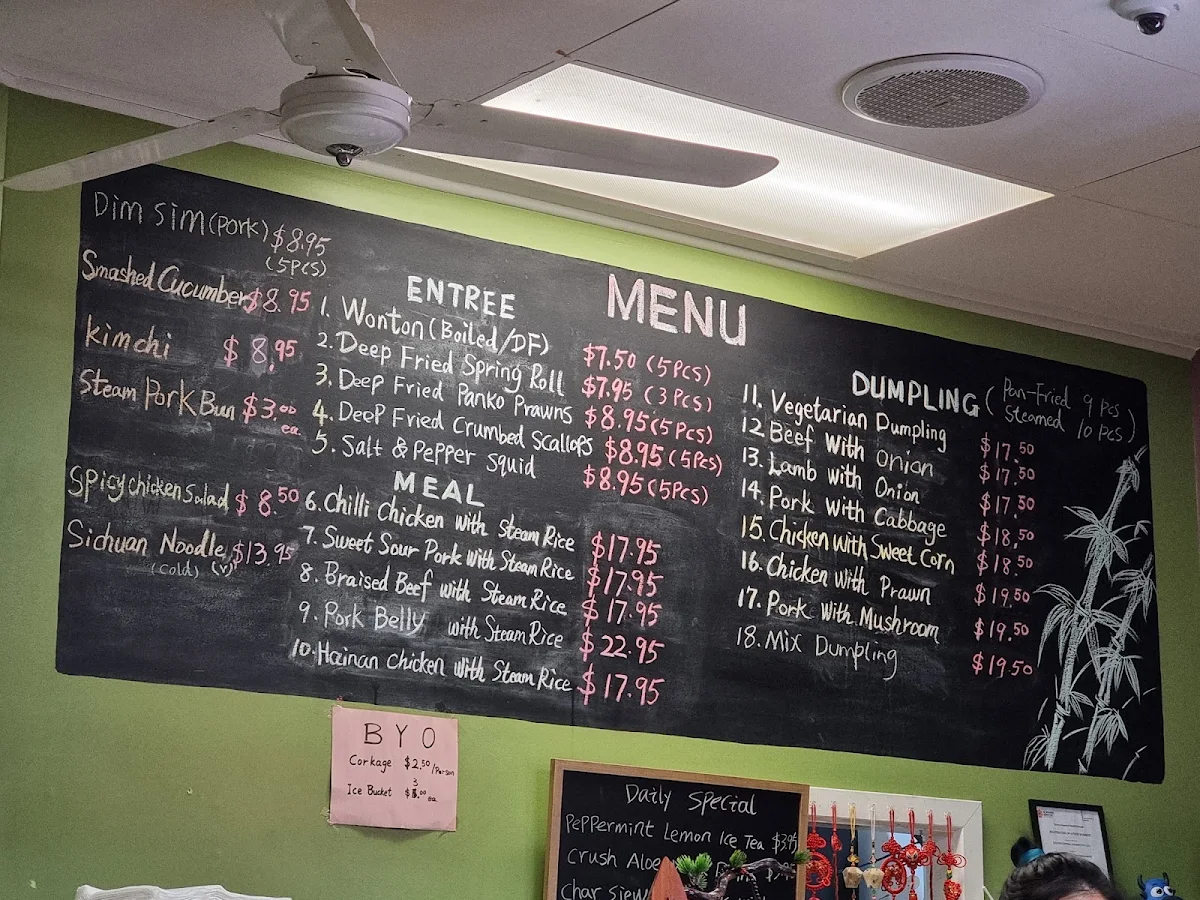 Dim Sim (Pork) $8.95
(5PCS)
Smashed Cucumber $8.95
Kimchi $8.95
Steam Pork Bun $3.00
ea
Spicy chicken Salad $8.50
Sichuan Noodle $13.95
(cold) (V)
MENU
ENTREE
1. Wonton (Boiled/DF) $7.50 (5PCS)
2. Deep Fried Spring Roll $7.95 (3PCS)
3. Deep Fried Panko Prawns $8.95 (5PCS)
4. Deep Fried Crumbed Scallops $8.95 (5PCS)
5. Salt & Pepper Squid $8.95 (5PCS)
MEAL
6. Chilli Chicken with Steam Rice $17.95
7. Sweet Sour Pork with Steam Rice $17.95
8. Braised Beef with Steam Rice $17.95
9. Pork Belly with Steam Rice $22.95
10. Hainan Chicken with Steam Rice $17.95
DUMPLING (Pan-Fried 9 pcs
Steamed 10 pcs)
11. Vegetarian Dumpling $17.50
12. Beef With Onion $17.50
13. Lamb with Onion $17.50
14. Pork with Cabbage $18.50
15. Chicken with Sweet Corn $18.50
16. Chicken with Prawn $19.50
17. Pork with Mushroom $19.50
18. Mix Dumpling $19.50
BYO
Corkage $2.50/Person
Ice Bucket $3.00 ea
Daily Special
Peppermint Lemon Ice Tea $3.95
Crush Aloe
Char Siew